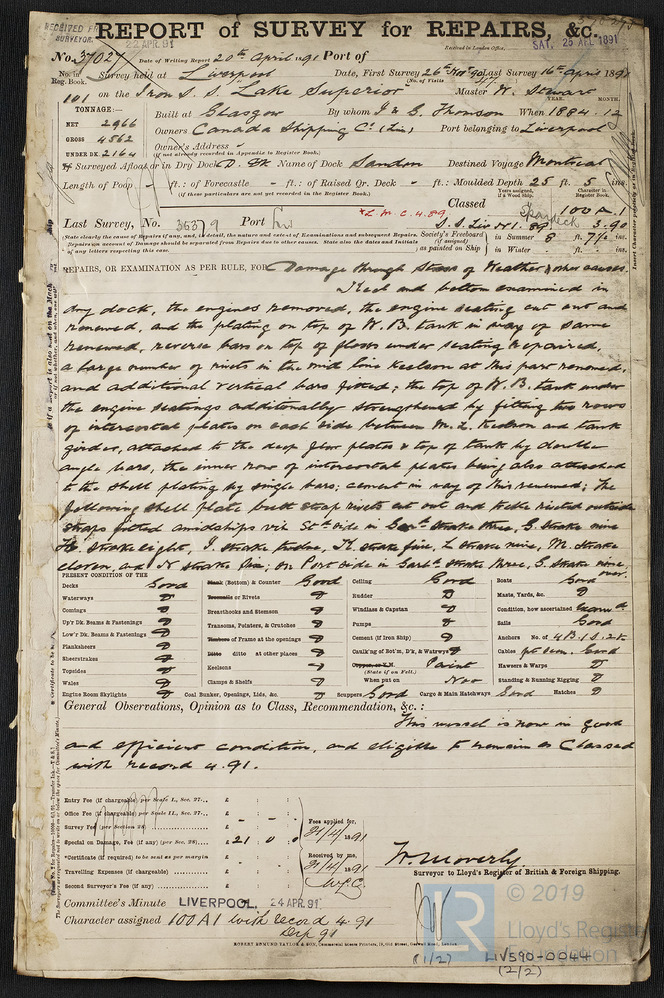 RECEIVED FR
SURVEYOR.
22 APR. 91
REPORT of SURVEY for REPAIRS, &c.
Received in London Office,
SAT. 25 APL 1891
No. 37027 Date of Writing Report 20th April 1891 Port of
No. in Reg. Book. Survey held at Liverpool Date, First Survey 26th Nov 90 Last Survey 16th April 1891
(No. of Visits
101 on the Iron S.S. Lake Superior Master W. Stewart
TONNAGE:—
YEAR. MONTH.
NET 2966 Built at Glasgow By whom J & G. Thomson When 1884. 12
GROSS 4562 Owners Canada Shipping Co (Lim) Port belonging to Liverpool
UNDER DK. 2164 Owner's Address -
(if not already recorded in Appendix to Register Book.)
If Surveyed Afloat or in Dry Dock D. Dk Name of Dock Sandon Destined Voyage Montreal
Length of Poop - ft.: of Forecastle - ft.: of Raised Qr. Deck - ft.: Moulded Depth 25 ft. 5 ins.
(if these particulars are not yet recorded in the Register Book.)
Years assigned, if a Wood Ship. Character in Register Book.
Classed Spar deck 100 A.1
*L.M.C. 4.89
Last Survey, No. 36379 Port Liv S.S. Liv No 1. 89 3.90
(State clearly the cause of Repairs if any, and in detail, the nature and extent of Examinations and subsequent Repairs.
Repairs on account of Damage should be separated from Repairs due to other causes. State also the dates and Initials
of any letters respecting this case.
Society's Freeboard (if assigned) as painted on Ship in Summer 8 ft. 7½ ins.
in Winter - ft. - ins.
REPAIRS, OR EXAMINATION AS PER RULE, FOR Damage through Stress of Weather & other causes.
Keel and bottom examined in
dry dock, the engines removed, the engine seating cut out and
renewed, and the plating on top of W. B. tank in way of same
renewed, reverse bars on top of floors under seating repaired,
a large number of rivets in the mid line keelson at this part renewed,
and additional vertical bars fitted; the top of W. B. tank under
the engine seatings additionally strengthened by fitting two rows
of intercostal plates on each side between M. L. Keelson and tank
girder, attached to the deep floor plates & top of tank by double
angle bars, the inner row of intercostal plates being also attached
to the shell plating by single bars; cement in way of this renewed; the
following shell plate butt strap rivets cut out and treble riveted outside
straps fitted amidships viz Stbd side in Garbd Strake three, G. Strake nine
H. Strake eight, J. Strake twelve, K. Strake five, L Strake nine, M. Strake
eleven, and N Strake five; on Port side in Garbd Strake three, G. Strake nine,
over.
PRESENT CONDITION OF THE
Decks Good Blank (Bottom) & Counter Good Ceiling Good Boats Good
Waterways " Treenails or Rivets " Rudder " Masts, Yards, &c. "
Comings " Breasthooks and Stemson " Windlass & Capstan " Condition, how ascertained Examnd
Up'r Dk. Beams & Fastenings " Transoms, Pointers, & Crutches " Pumps " Sails Good
Low'r Dk. Beams & Fastenings " Timbers of Frame at the openings " Cement (if Iron Ship) " Anchors No. of 4B.1S.2K
Planksheers " Ditto ditto at other places " Caulk'ng of Bot'm, D'k, & Watrw'ys " Cables Good
Sheerstrakes " Keelsons " Copper, or Y.M. Paint Hawsers & Warps "
(State if on Felt.)
Topsides " Clamps & Shelfs " When put on Nov Standing & Running Rigging "
Wales "
Engine Room Skylights " Coal Bunker, Openings, Lids, &c. " Scuppers Good Cargo & Main Hatchways Good Hatches "
General Observations, Opinion as to Class, Recommendation, &c.:
This vessel is now in good
and efficient condition, and eligible to remain as Classed
with record 4.91.
Entry Fee (if chargeable) per Scale I., Sec. 27... £ : :
Office Fee (if chargeable) per Scale II., Sec. 27... £ : :
Survey Fee (per Section 28) £ - : - : -
Special on Damage, Fee (if any) (per Sec. 28)... £ 21 : 0 : 0
Certificate (if required) to be sent as per margin £ - : - : -
Travelling Expenses (if chargeable) £ : :
Second Surveyor's Fee (if any) £ : :
Fees applied for,
21/4/1891
Received by me,
21/4/1891
W.P.C.
W. Moverly
Surveyor to Lloyd's Register of British & Foreign Shipping.
Committee's Minute LIVERPOOL, 24 APR. 91
Character assigned 100 A1 with record 4.91
Drp 91
ROBERT EDMUND TAYLOR & SON, Commercial Access Printers, 19, Old Street, Goswell Road, London.
LR
© 2019
Lloyd's Register
Foundation
(1/2)
LIV590-0044
(2/2)